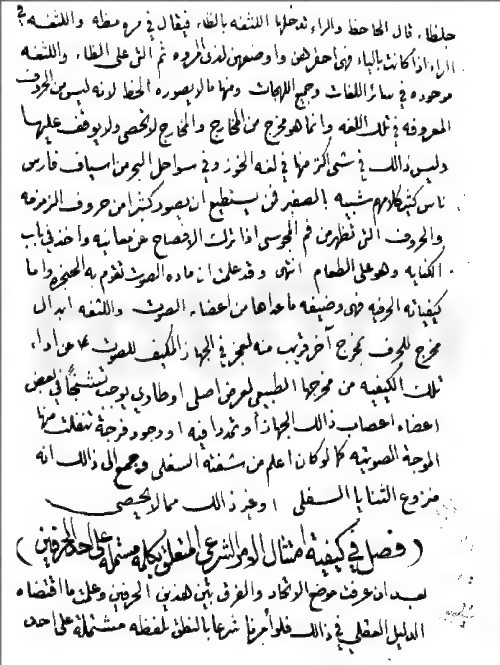 جلظاء قال الجاحظ والراء تدخلها اللثغه بالظاء فيقال في مره مظه واللثغه في
الراء اذا كانت بالياء فهى احقرهن واوضعهن لذى المروه ثم التى على الظاء واللثغه
موجوده في سائر اللغات وجميع اللهجات ومنها مالا يصوره الخط لانه ليس من الحروف
المعروفه في تلك اللغه وانما هو مخرج من المخارج والمخارج لا تحصى ولا يوقف عليها
وليس ذالك في شى اكثر منها في لغه الخوز وفي سواحل البحر من اسياف فارس
ناس كثير كلامهم شبيه بالصفير فمن يستطيع ان يصور كثيرا من حروف الزمزمه
والحروف التى تظهر من فم المجوسى اذا ترك الافصاح عن معانيه واخذ في باب
الكنايه وهو على الطعام انتهى وقد علمت ان ماده الصوت تقوم به الحنجره واما
كيفياته الحرفيه فهى وضيفه ماعداها من اعضاء الصوت واللثغه ابدال
مخرج للحرف بمخرج آخر قريب منه لعجز في الجهاز المكيف للصوت عن اداء
تلك الكيفيه من مخرجها الطبيعى لعرض اصلى او طارى يوجب تشنجًا في بعض
اعضاء اعصاب ذالك الجهاز أو تمددا فيه او وجود فرجة تنفلت منها
الموجة الصوتيه كما لو كان اعلم من شفته السفلى وجمع الى ذالك انه
منزوع الثنايا السفلى او غير ذالك مما لا يحصى
( فصل في كيفية امتثال الامر الشرعى المتعلق بكلمة مشتملة على احد الحرفين )
بعد ان عرفت موضع الاتحاد والفرق بين هذين الحرفين وعلمت ما اقتضاه
الدليل العقلى في ذالك فلو أمرنا شرعا بالنطق بلفظه مشتملة على احد